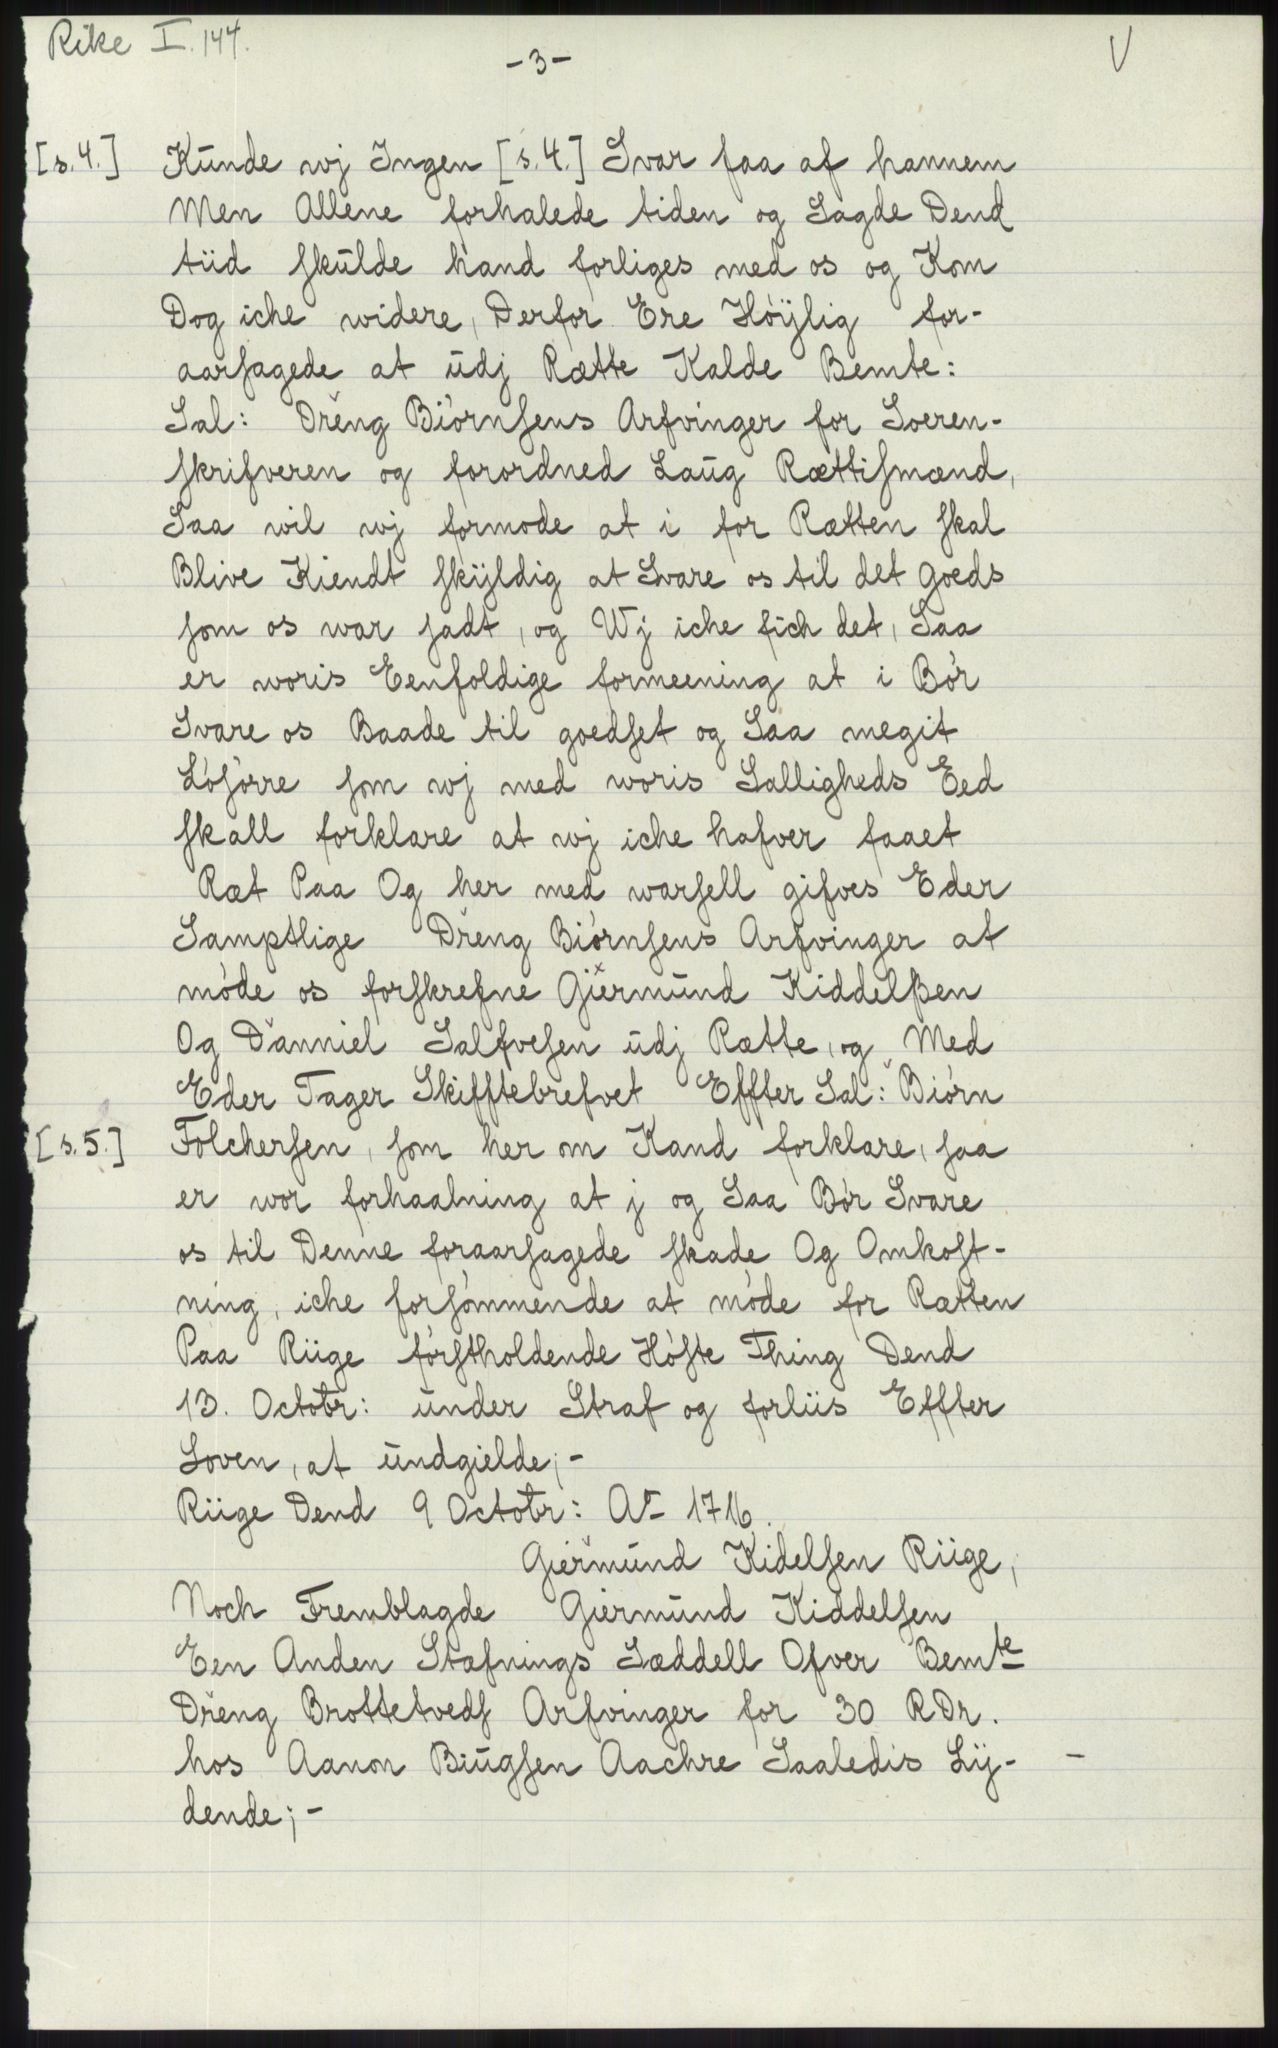 Rike I. 144.
-3-
V
[s.4.] Kunde wj Ingen [s.4.] Svar faa af hannem
Men Allene forhalede tiden og Sagde Dend
tiid skulde hand forliges med os og Kom
Dog iche widere, Derfor Ere Høÿlig for-
aarsagede at udj Rætte Kalde Bemte:
Sal: Dreng Biørnsens Arfvinger for Soeren-
skrifveren og forordned Laug Rættismænd,
Saa wil wj formode at i for Rætten skal
Blive Kiendt skÿldig at Svare os til det goeds
som os war sadt, og Wj iche fich det, Saa
er woris Eenfoldige formeening at i Bør
Svare os Baade til goedset og Saa megit
Løsørre som wj med woris Salligheds Eed
skall forklare at wj iche hafver faaet
Ræt Paa Og her med warsell gifves Eder
Samptlige Dreng Biørnsens Arfvinger at
møde os forskrefne Giermund Kiddelßen
Og Danniel Salfvesen udj Rætte, og Med
Eder Tager Skifftebrefvet Effter Sal: Biørn
[s.5.] Folchersen, som her om Kand forklare, saa
er wor forhaalning at j og Saa Bør Svare
os til Denne foraarsagede skade Og Omkost-
ning, iche forsømmende at møde for Rætten
Paa Riige førstholdende Høste Thing Dend
13. Octobr: under Straf og forliis Effter
Loven, at undgielde;-
Riige Dend 9 Octobr: Aͬ 1716.
Giermund Kidelsen Riige,
Noch Fremblagde Giermund Kiddelsen
Een Anden Stæfnings Sæddell Ofver Bemte
Dreng Brottetveds Arfvinger for 30 RDr.
hos Aanon Biugsen Aachre Saaledis Lÿ- -
dende;-